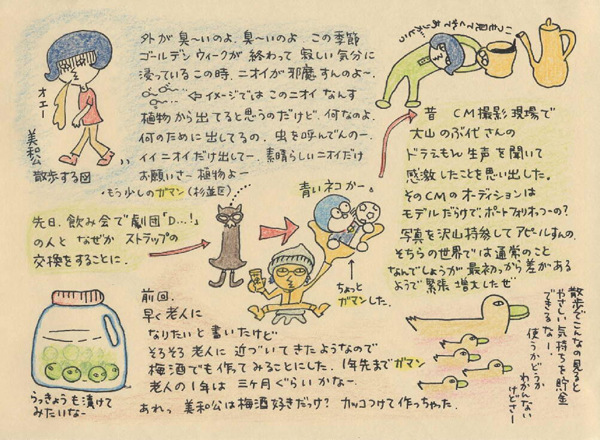 外が臭〜いのよ、臭〜いのよ　この季節
ゴールデンウィークが終わって寂しい気分に
浸っているこの時、ニオイが邪魔すんのよ〜、
⇦イメージではこのニオイなんす
植物から出てると思うのだけど、何なのよ、
何のために出してるの、虫を呼んでんの〜、
イイニオイだけ出して〜、素晴らしいニオイだけ
お願いさ〜植物よ〜
・もう少しのガマン(杉並区)
オエー
美和公
散歩する図
いつも見てくれてありがとう
昔　CM撮影現場で
大山のぶ代さんの
ドラえもん生声を聞いて
感激したことを思い出した。
そのCMのオーディションは
モデルだらけでポートフォリオっつーの?
写真を沢山持参してアピールすんの。
そちらの世界では通常のこと
なんでしょうが最初っから差がある
ようで緊張増大したぜ
先日、飲み会で劇団「D…!」
の人となぜかストラップの
交換をすることに.
青いネコか〜。
ちょっと
ガマンした.
前回、
早く老人に
なりたいと書いたけど
そろそろ老人に近づいてきたようなので
梅酒でも作ってみることにした. 1年先までガマン
老人の1年は三ヶ月ぐらいかな〜
あれっ　美和公は梅酒好きだっけ?　カッコつけて作っちゃった.
らっきょうも漬けて
みたいな〜
散歩でこんなの見ると
やさしい気持ちを貯金
できるな〜!
使うかどうか
わかんない
けどさ〜